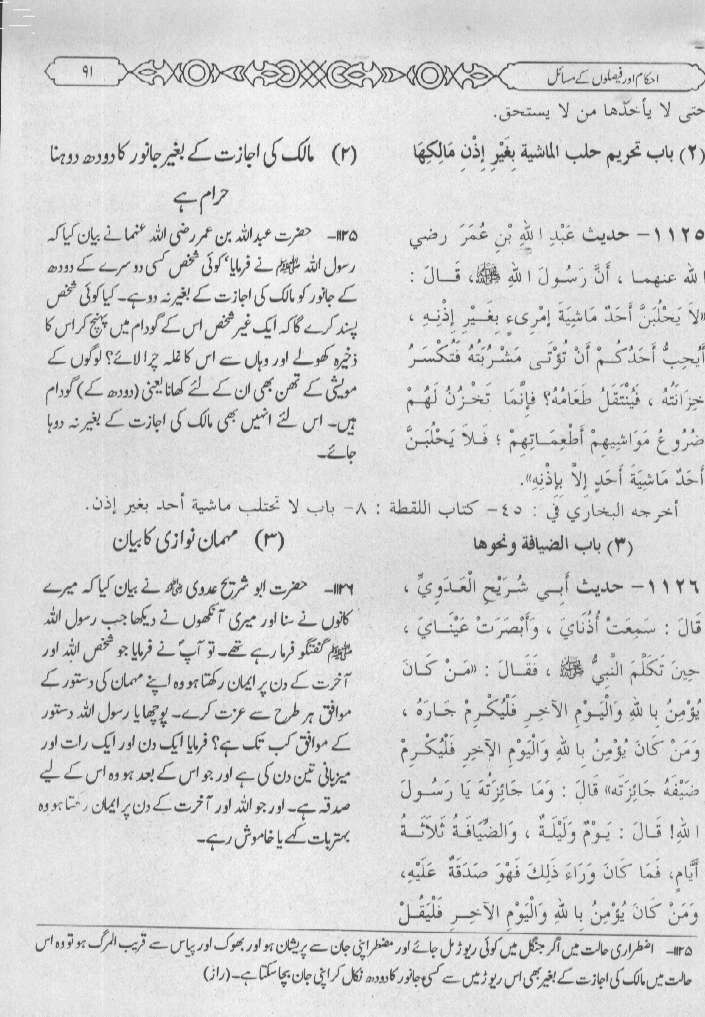 احکام اور فیصلوں کے مسائل
۹۱
حتى لا يأخذها من لا يستحق.
(۲) باب تحريم حلب الماشية بِغَيْرِ إِذْنِ مَالِكِهَا
١١٢٥- حديث عَبْدِ اللهِ بْنِ عُمَرَ رضي
الله عنهما ، أَنَّ رَسُولَ اللهِ ﷺ، قَالَ :
«لَا يَحْلُبَنَّ أَحَدٌ مَاشِيَةَ إِمْرِىءٍ بِغَيْرِ إِذْنِهِ ،
أَيُحِبُّ أَحَدُكُمْ أَنْ تُؤْتَى مَشْرُبَتُهُ فَتُكْسَرُ
خِزَانَتُهُ ، فَيُنْتَقَلُ طَعَامُهُ؟ فَإِنَّمَا تَخْزُنُ لَهُمْ
ضُرُوعُ مَوَاشِيهِمْ أَطْعِمَاتِهِمْ ؛ فَلَا يَحْلُبَنَّ
أَحَدٌ مَاشِيَةَ أَحَدٍ إِلاَّ بِإِذْنِهِ».
(۲) مالک کی اجازت کے بغیر جانور کا دودھ دوہنا
حرام ہے
۱۱۲۵- حضرت عبداللہ بن عمر رضی اللہ عنہما نے بیان کیا کہ
رسول اللہ ﷺ نے فرمایا‘ کوئی شخص کسی دوسرے کے دودھ
کے جانور کو مالک کی اجازت کے بغیر نہ دوہے۔ کیا کوئی شخص
پسند کرے گا کہ ایک غیر شخص اس کے گودام میں پہنچ کر اس کا
ذخیرہ کھولے اور وہاں سے اس کا غلہ چرا لائے؟ لوگوں کے
مویشی کے تھن بھی ان کے لئے کھانا یعنی (دودھ کے) گودام
ہیں۔ اس لئے انہیں بھی مالک کی اجازت کے بغیر نہ دوہا
جائے۔
أخرجه البخاري في : ٤٥- كتاب اللقطة : ٨- باب لا تحتلب ماشية أحد بغير إذن.
(۳) باب الضيافة ونحوها
١١٢٦- حديث أَبِي شُرَيْحٍ الْعَدَوِيِّ ،
قَالَ : سَمِعَتْ أُذُنَايَ ، وَأَبْصَرَتْ عَيْنَايَ ،
حِينَ تَكَلَّمَ النَّبِيُّ ﷺ ، فَقَالَ : «مَنْ كَانَ
يُؤْمِنُ بِاللهِ وَالْيَوْمِ الآخِرِ فَلْيُكْرِمْ جَارَهُ ،
وَمَنْ كَانَ يُؤْمِنُ بِاللهِ وَالْيَوْمِ الآخِرِ فَلْيُكْرِمْ
ضَيْفَهُ جَائِزَتَه» قَالَ : وَمَا جَائِزَتُهُ يَا رَسُولَ
اللهِ! قَالَ : يَوْمٌ وَلَيْلَةٌ ، وَالضِّيَافَةُ ثَلَاثَةُ
أَيَّامٍ، فَمَا كَانَ وَرَاءَ ذَلِكَ فَهْوَ صَدَقَةٌ عَلَيْهِ،
وَمَنْ كَانَ يُؤْمِنُ بِاللهِ وَالْيَوْمِ الآخِرِ فَلْيَقُلْ
(۳) مہمان نوازی کا بیان
۱۱۲۶- حضرت ابو شریح عدوی رضی اللہ عنہ نے بیان کیا کہ میرے
کانوں نے سنا اور میری آنکھوں نے دیکھا جب رسول اللہ
ﷺ گفتگو فرما رہے تھے۔ تو آپؐ نے فرمایا جو شخص اللہ اور
آخرت کے دن پر ایمان رکھتا ہو وہ اپنے مہمان کی دستور کے
موافق ہر طرح سے عزت کرے۔ پوچھا یا رسول اللہ دستور
کے موافق کب تک ہے؟ فرمایا ایک دن اور ایک رات اور
میزبانی تین دن کی ہے اور جو اس کے بعد ہو وہ اس کے لیے
صدقہ ہے۔ اور جو اللہ اور آخرت کے دن پر ایمان رکھتا ہو وہ
بہتر بات کہے یا خاموش رہے۔
۱۱۲۵- اضطراری حالت میں اگر جنگل میں کوئی ریوڑ مل جائے اور مضطر اپنی جان سے پریشان ہو اور بھوک اور پیاس سے قریب المرگ ہو تو وہ اس
حالت میں مالک کی اجازت کے بغیر بھی اس ریوڑ میں سے کسی جانور کا دودھ نکال کر اپنی جان بچا سکتا ہے۔ (راز)